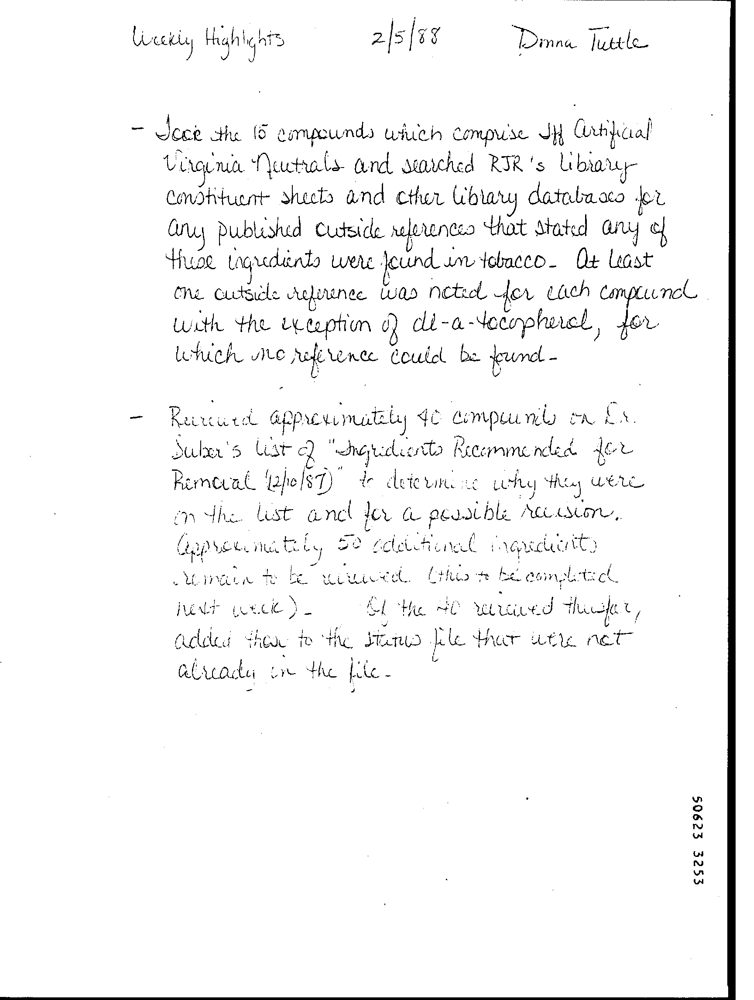 Weekly Highlights 2/5/88 Donna Tuttle
- Took the 15 compounds which comprise Iff Artificial
Virginia Neutrals and searched RJR's library
constituent sheets and other library databases for
any published outside references that stated any of
these ingredients were found in tobacco. At least
one outside reference was noted for each compound
with the exception of dl-a-tocopherol, for
which no reference could be found.
- Reviewed approximately 40 compounds on Dr.
Suber's list of "Ingredients Recommended for
Removal (12/10/87)" to determine why they were
on the list and for a possible revision.
Approximately 50 additional ingredients
remain to be reviewed (this to be completed
next week). Of the 40 reviewed thusfar,
added those to the status file that were not
already in the file.
50623 3253